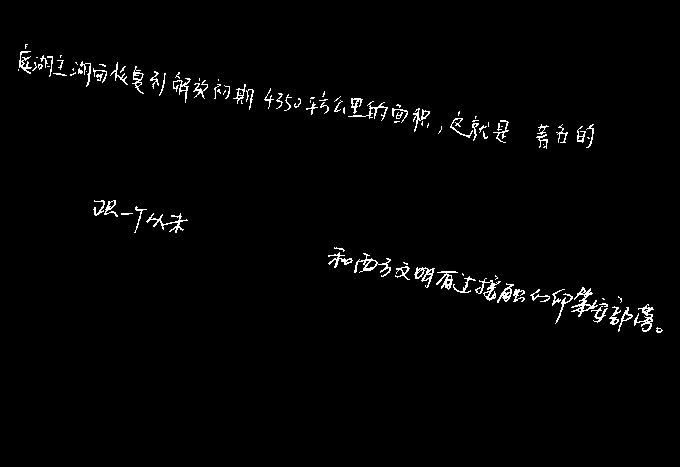 庭湖主湖面恢复到解放初期4350平方公里的面积,这就是 著名的
跟一个从未
和西方文明有过接触的印第安部落。